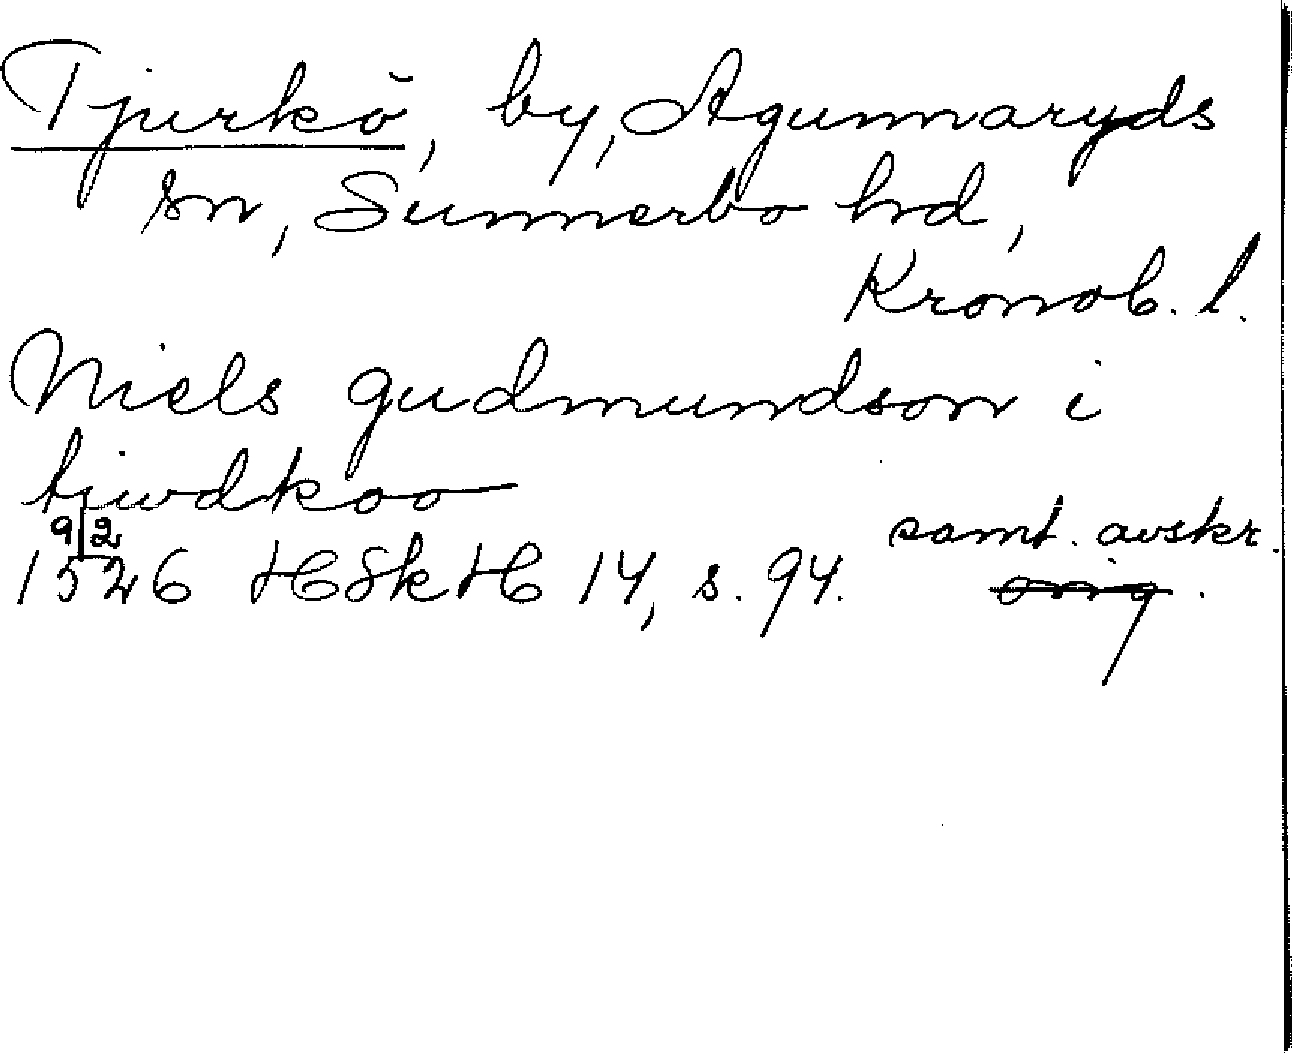 Tjurkö, by, Agunnaryds
sn, Sunnerbo hd,
Kronob. l.
Niels gudmundson i
tjwdkoo
9/2
samt. avskr.
1526 HSkH 14, s. 94. orig.